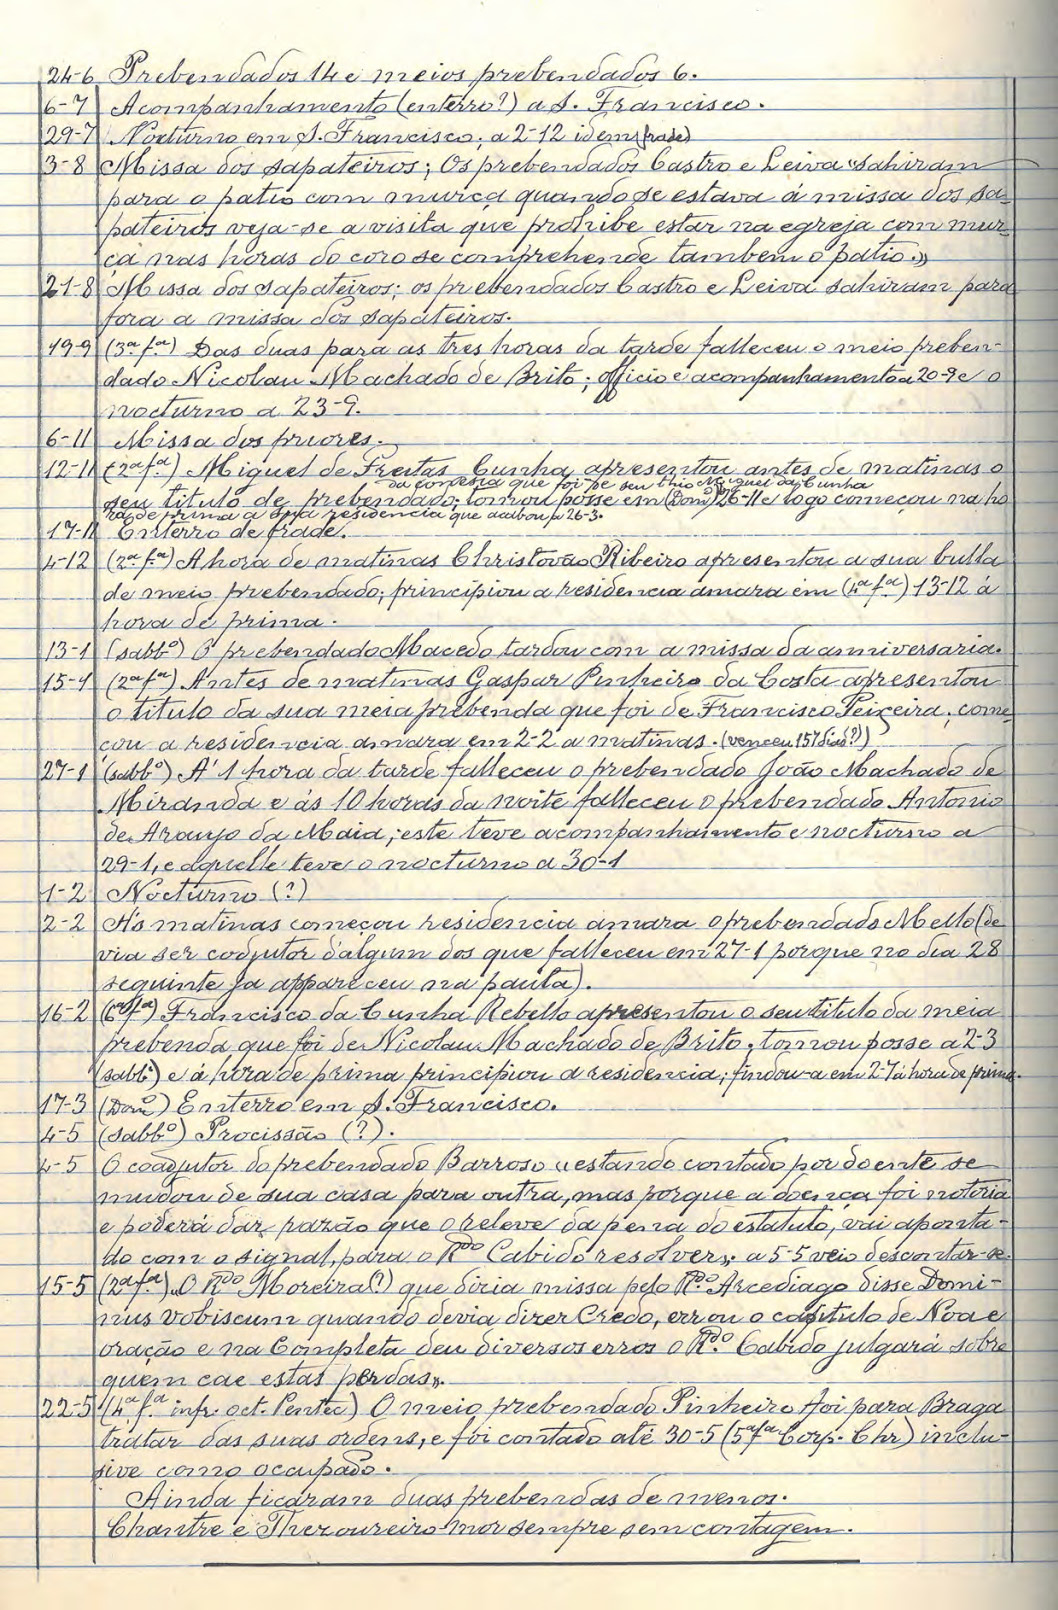 24-6 Prebendados 14 e meios prebendados 6.
6-7 Acompanhamento (enterro?) a S. Francisco.
29-7 Nocturno em S. Francisco; a 2-12 idem (frade)
3-8 Missa dos sapateiros; Os prebendados Castro e Leiva "sahiram
para o patio com murça quando se estava á missa dos sa-
pateiros veja-se a visita que prohibe estar na egreja com mur-
ça nas horas do coro se comprehende tambem o patio.»
21-8 Missa dos sapateiros; os prebendados Castro e Leiva sahiram para
fora a missa dos sapateiros.
19-9 (3ª fª) Das duas para as tres horas da tarde falleceu o meio preben-
dado Nicolau Machado de Brito; officio e acompanhamento a 20-9 e o
nocturno a 23-9.
6-11 Missa dos priores.
12-11 (2ª fª) Miguel de Freitas Cunha apresentou antes de matinas o
da conesia que foi de seu thio Miguel da Cunha
seu titulo de prebendado; tomou posse em (Domº) 26-11 e logo começou na ho
ra de prima a sua residencia que acabou a 26-3.
17-11 Enterro de frade.
4-12 (2ª fª) A hora de matinas Christovão Ribeiro apresentou a sua bulla
de meio prebendado; principiou a residencia amara em (4ª fª) 13-12 á
hora de prima.
13-1 (sabbº) O prebendado Macedo tardou com a missa da anniversaria.
15-1 (2ª fª) Antes de matinas Gaspar Pinheiro da Costa apresentou
o titulo da sua meia prebenda que foi de Francisco Teixeira, come-
çou a residencia amara em 2-2 a matinas. (venceu 151 dias?)
27-1 (sabbº) A' 1 hora da tarde falleceu o prebendado João Machado de
Miranda e ás 10 horas da noite falleceu o prebendado Antonio
de Araujo da Maia; este teve acompanhamento e nocturno a
29-1, e aquelle teve o nocturno a 30-1
1-2 Nocturno (?)
2-2 A's matinas começou residencia amara o prebendado Mello (de
via ser codjutor d'algum dos que falleceu em 27-1 porque no dia 28
seguinte ja appareceu na pauta).
16-2 (6ª fª) Francisco da Cunha Rebello apresentou o seu titulo da meia
prebenda que foi de Nicolau Machado de Brito; tomou posse a 2-3
(sabbº) e á hora de prima principiou a residencia; findou-a em 2-7 á hora de prima.
17-3 (Domº) Enterro em S. Francisco.
4-5 (sabbº) Procissão (?).
4-5 O coadjutor do prebendado Barroso "estando contado por doente se
mudou de sua casa para outra, mas porque a doença foi notoria
e poderá dar razão que o releve da pena do estatuto, vai aponta-
do com o signal, para o Rdo Cabido resolver,, a 5-5 veio descontar-se.
15-5 (2ª fª) "O Rdo Moreira (?) que dicia missa pelo Rdo Arcediago disse Domi-
nus vobiscum quando devia dizer Credo, errou o capitulo de Noa e
oração e na Completa deu diversos erros o Rdo Cabido julgará sobre
quem cae estas perdas».
22-5 (4ª fª infr. oct. Pentec) O meio prebendado Pinheiro foi para Braga
tratar das suas ordens, e foi contado até 30-5 (5ª fª Corp. Chr) inclu-
sive como occupado.
Ainda ficaram duas prebendas de menos.
Chantre e Thezoureiro-mor sempre sem contagem.